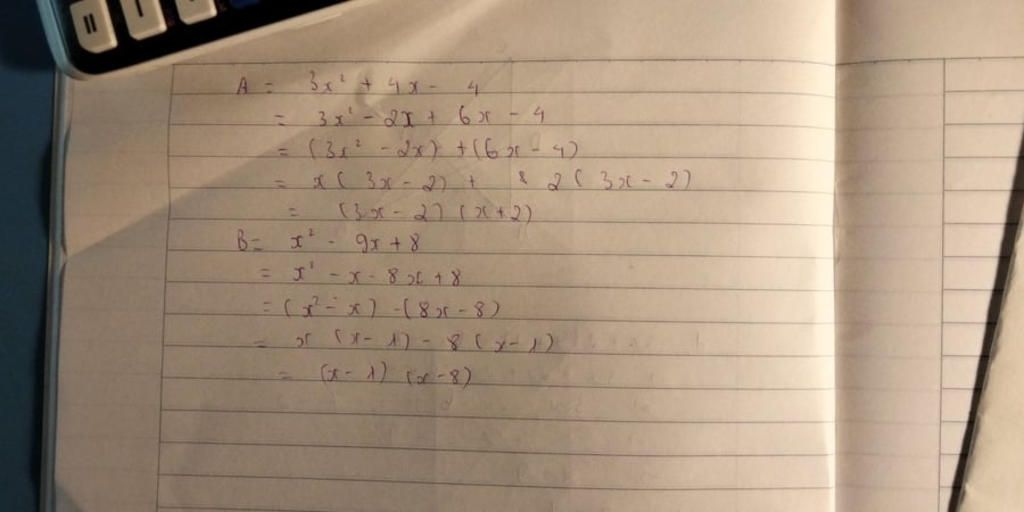 A = 3x² + 4x - 4
= 3x² - 2x + 6x - 4
= (3x² - 2x) + (6x - 4)
= x(3x - 2) + 2(3x - 2)
= (3x - 2)(x + 2)
B = x² - 9x + 8
= x² - x - 8x + 8
= (x² - x) - (8x - 8)
= x(x - 1) - 8(x - 1)
= (x - 1)(x - 8)